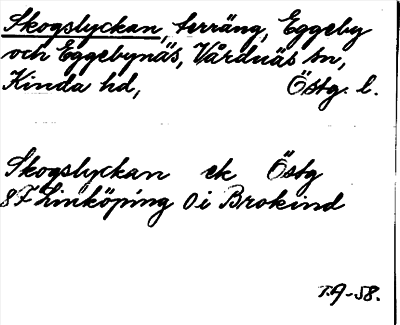 Skogslyckan, terräng, Eggeby
och Eggebynäs, Vårdnäs sn,
Kinda hd, Östg. l.
Skogslyckan ek Östg
8F Linköping 0i Brokind
T.A-58.